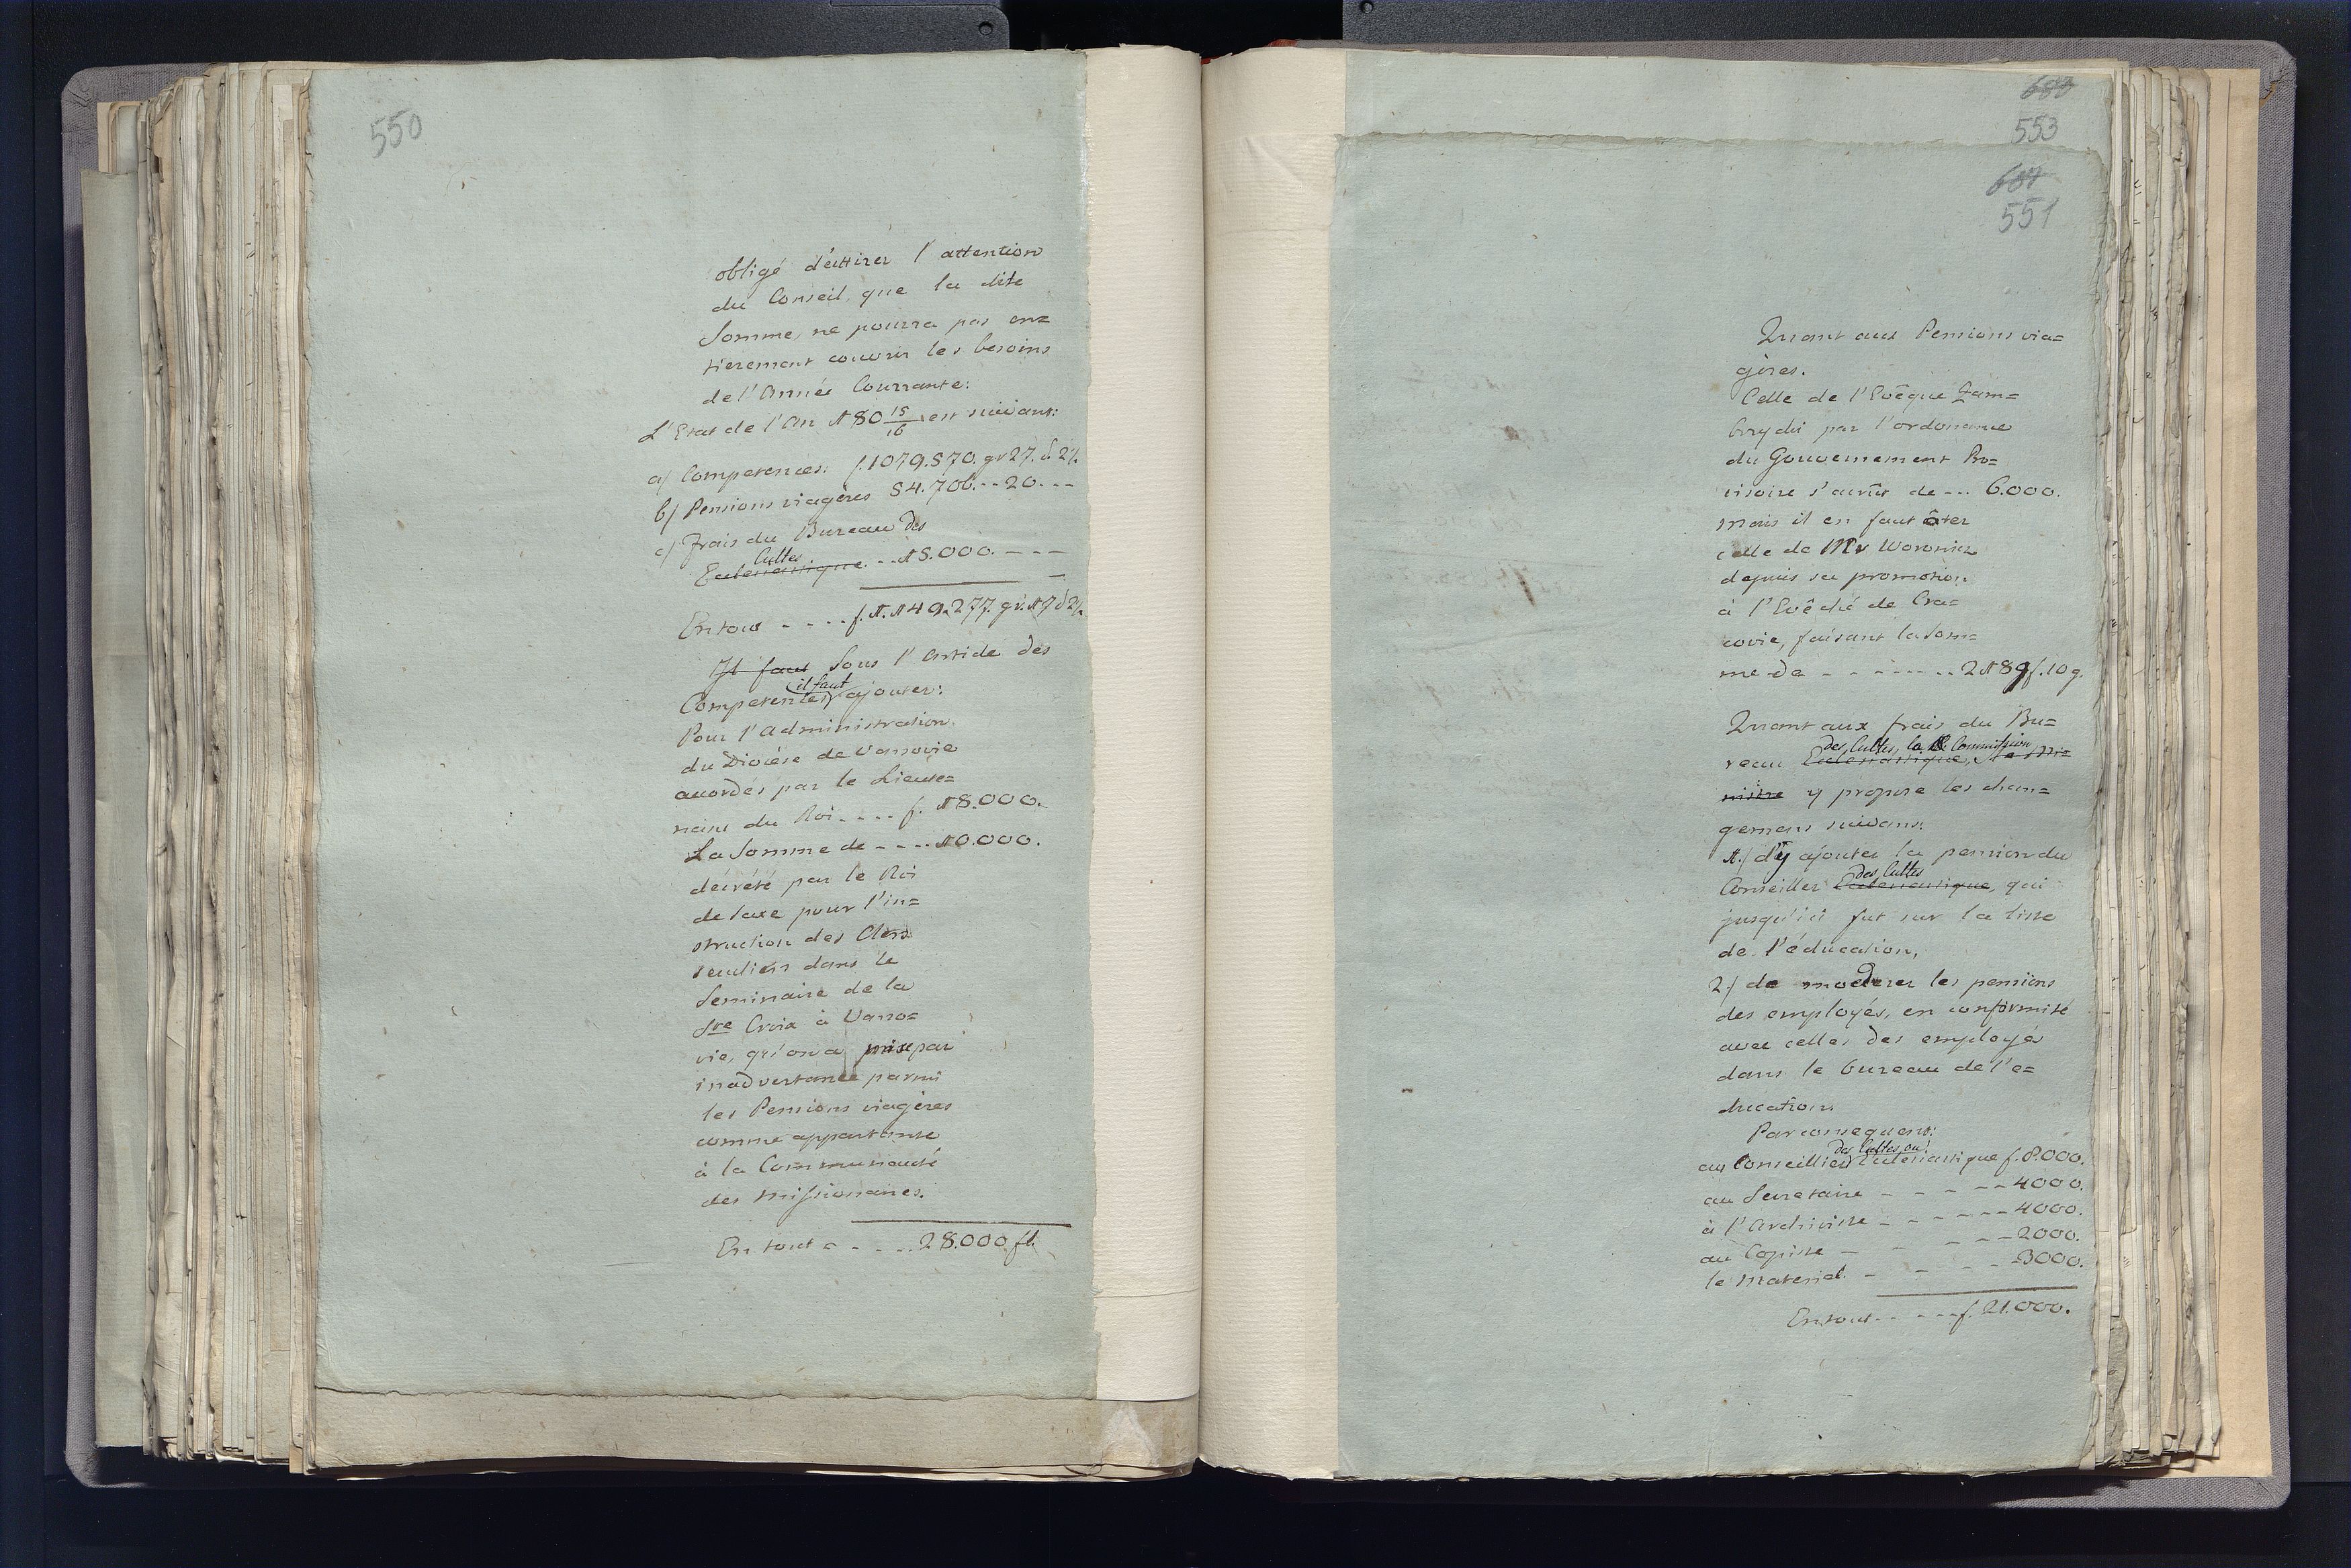 550
obligé d'attirer l'attention
du Conseil, que la dite
Somme, ne pourra pas en=
tierement couvrir les besoins
de l'Année Courrante:
L'Etat de l'An 180 15/16 est suivant:
a/ Competences: f. 1079.570. gr 27. d. 2 1/2
b/ Pensions viagères 54.706. -- 20 ---
c/ Frais du Bureau des
Cultes
Ecclesiastique. -- 15.000. ---
En tout - - - - f. 1.149.277. gr. 17 d 2 1/2
Il faut Sous l'Article des
il faut
Competences ajouter:
Pour l'Administration
du Diocése de Varsovie
accordés par le Lieute=
nant du Roi - - - - f. 18.000.
La Somme de - - - - 10.000.
décrété par le Roi
de Saxe pour l'in=
struction des Clers
seculiers dans le
Seminaire de la
Ste Croix à Varso=
vie, qu'on a mise par
inadvertance parmi
les Pensions viagères
comme appartante
à la Communauté
des Missionaires.
En tout - - - - 28.000 fl.
680
553
681
551
Quant aux Pensions via=
gères.
Celle de l'Evêque Zam=
brzycki par l'ordonance
du Gouvernement Pro=
visoire s'acrût de --- 6.000.
mais il en faut ôter
celle de Mr Woronicz
depuis sa promotion
à l'Evêché de Cra=
covie, faisant la Som=
me de - - - - - - - 2189 f. 10 g.
Quant aux frais du Bu=
des Cultes, la Commission
reau Ecclesiastique, Mi=
nistre y propose les chan=
gemens suivans:
1./ d'y ajouter la pension du
des Cultes
Conseiller Ecclesiastique, qui
jusqu'ici fut sur la liste
de l'éducation,
2./ de moderer les pensions
des employés, en conformité
avec celles des employés
dans le bureau de l'e=
ducation
Par consequent:
des Cultes ou
au Conseillier Ecclesiastique f. 8.000.
au Secretaire - - - - - 4000.
à l'Archiviste - - - - - 4000.
au Copiste - - - - 2000.
le Materiel - - - - 3000.
En tout - - - - f. 21.000.